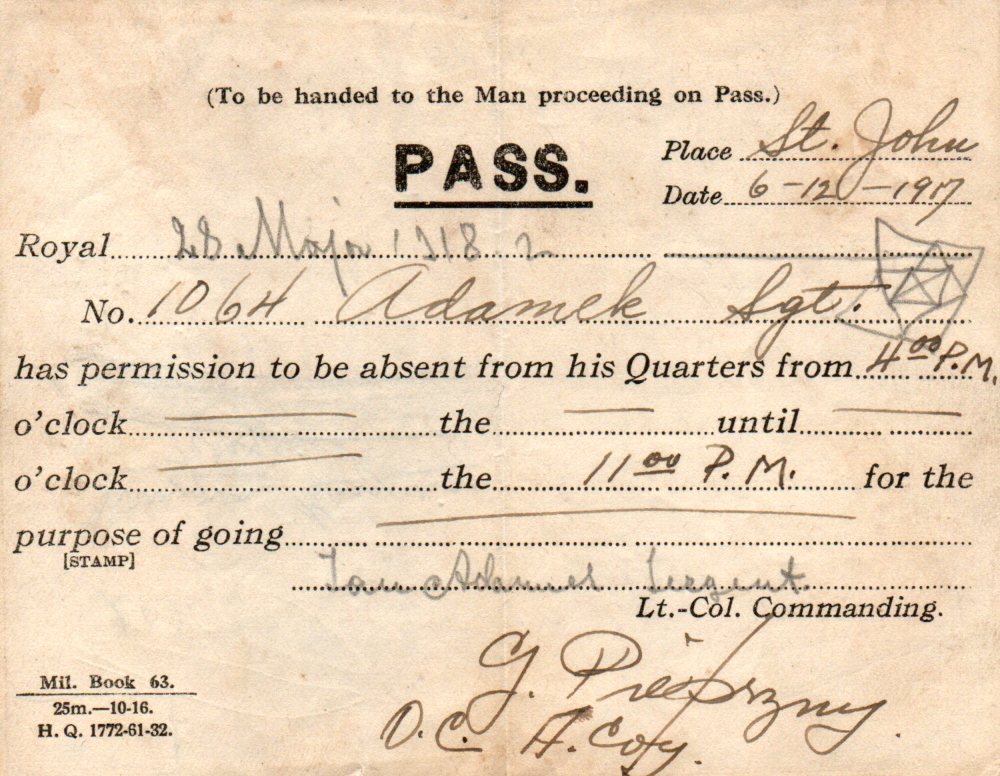 (To be handed to the Man proceeding on Pass.)
PASS.
Place St. John
Date 6-12-1917
Royal 28 Maja 1918 r
No. 1064 Adamek Sgt.
has permission to be absent from his Quarters from 4 00 P.M.
o'clock the until
o'clock the 11 00 P.M. for the
purpose of going
[STAMP]
Jan Adamek
Lt.-Col. Commanding.
G. Pieprzny
O.C. A. Coy.
Mil. Book 63.
25m.—10-16.
H. Q. 1772-61-32.